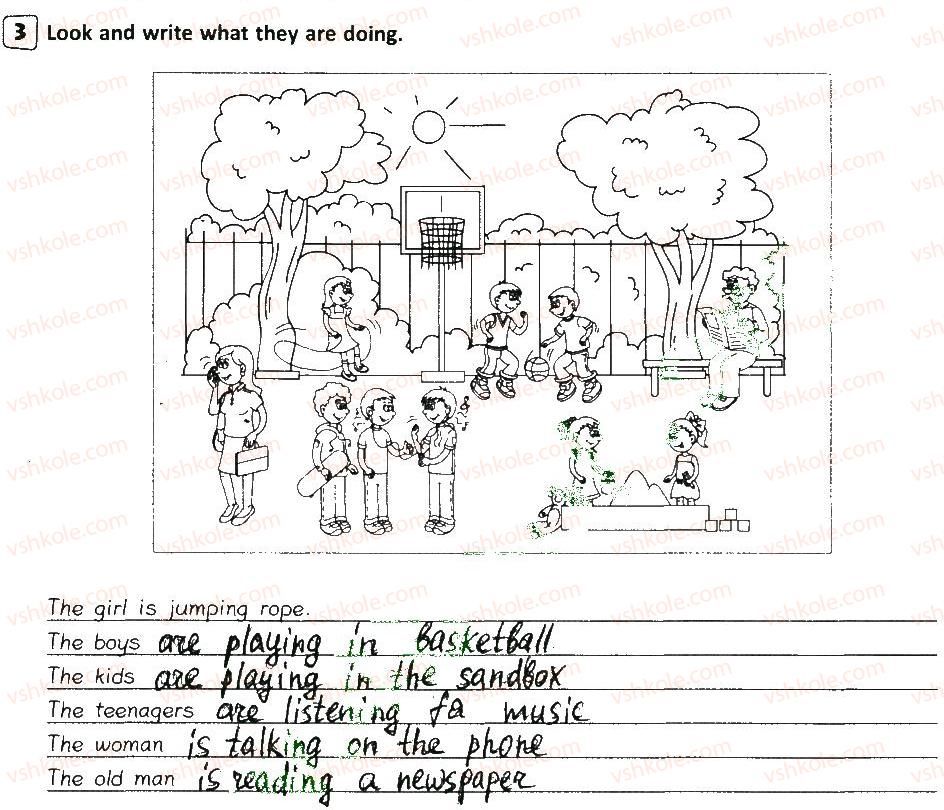 3 Look and write what they are doing.
The girl is jumping rope.
The boys are playing in basketball
The kids are playing in the sandbox
The teenagers are listening to music
The woman is talking on the phone
The old man is reading a newspaper
vshkole.com